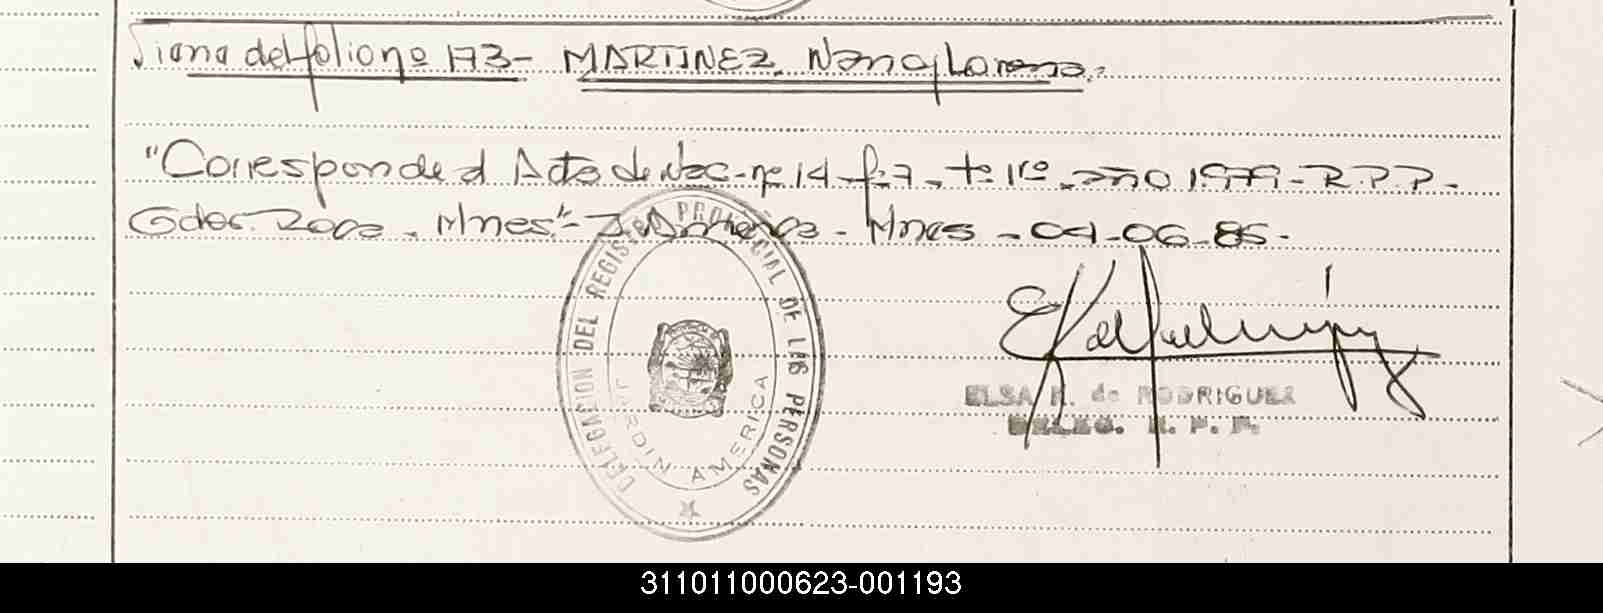 Viene del folio nº 173- MARTINEZ, Nancy Lorena.
"Corresponde al Acta de Nac. nº 14 fº 7, tº 1ro, año 1.979-R.P.P.
Gdor. Roca. Mnes"- J. América - Mnes - 04-06-85-
DELEGACION DEL REGISTRO PROVINCIAL DE LAS PERSONAS
JARDIN AMERICA
ELSA K. de RODRIGUEZ
DELEG. R. P. P.
311011000623-001193